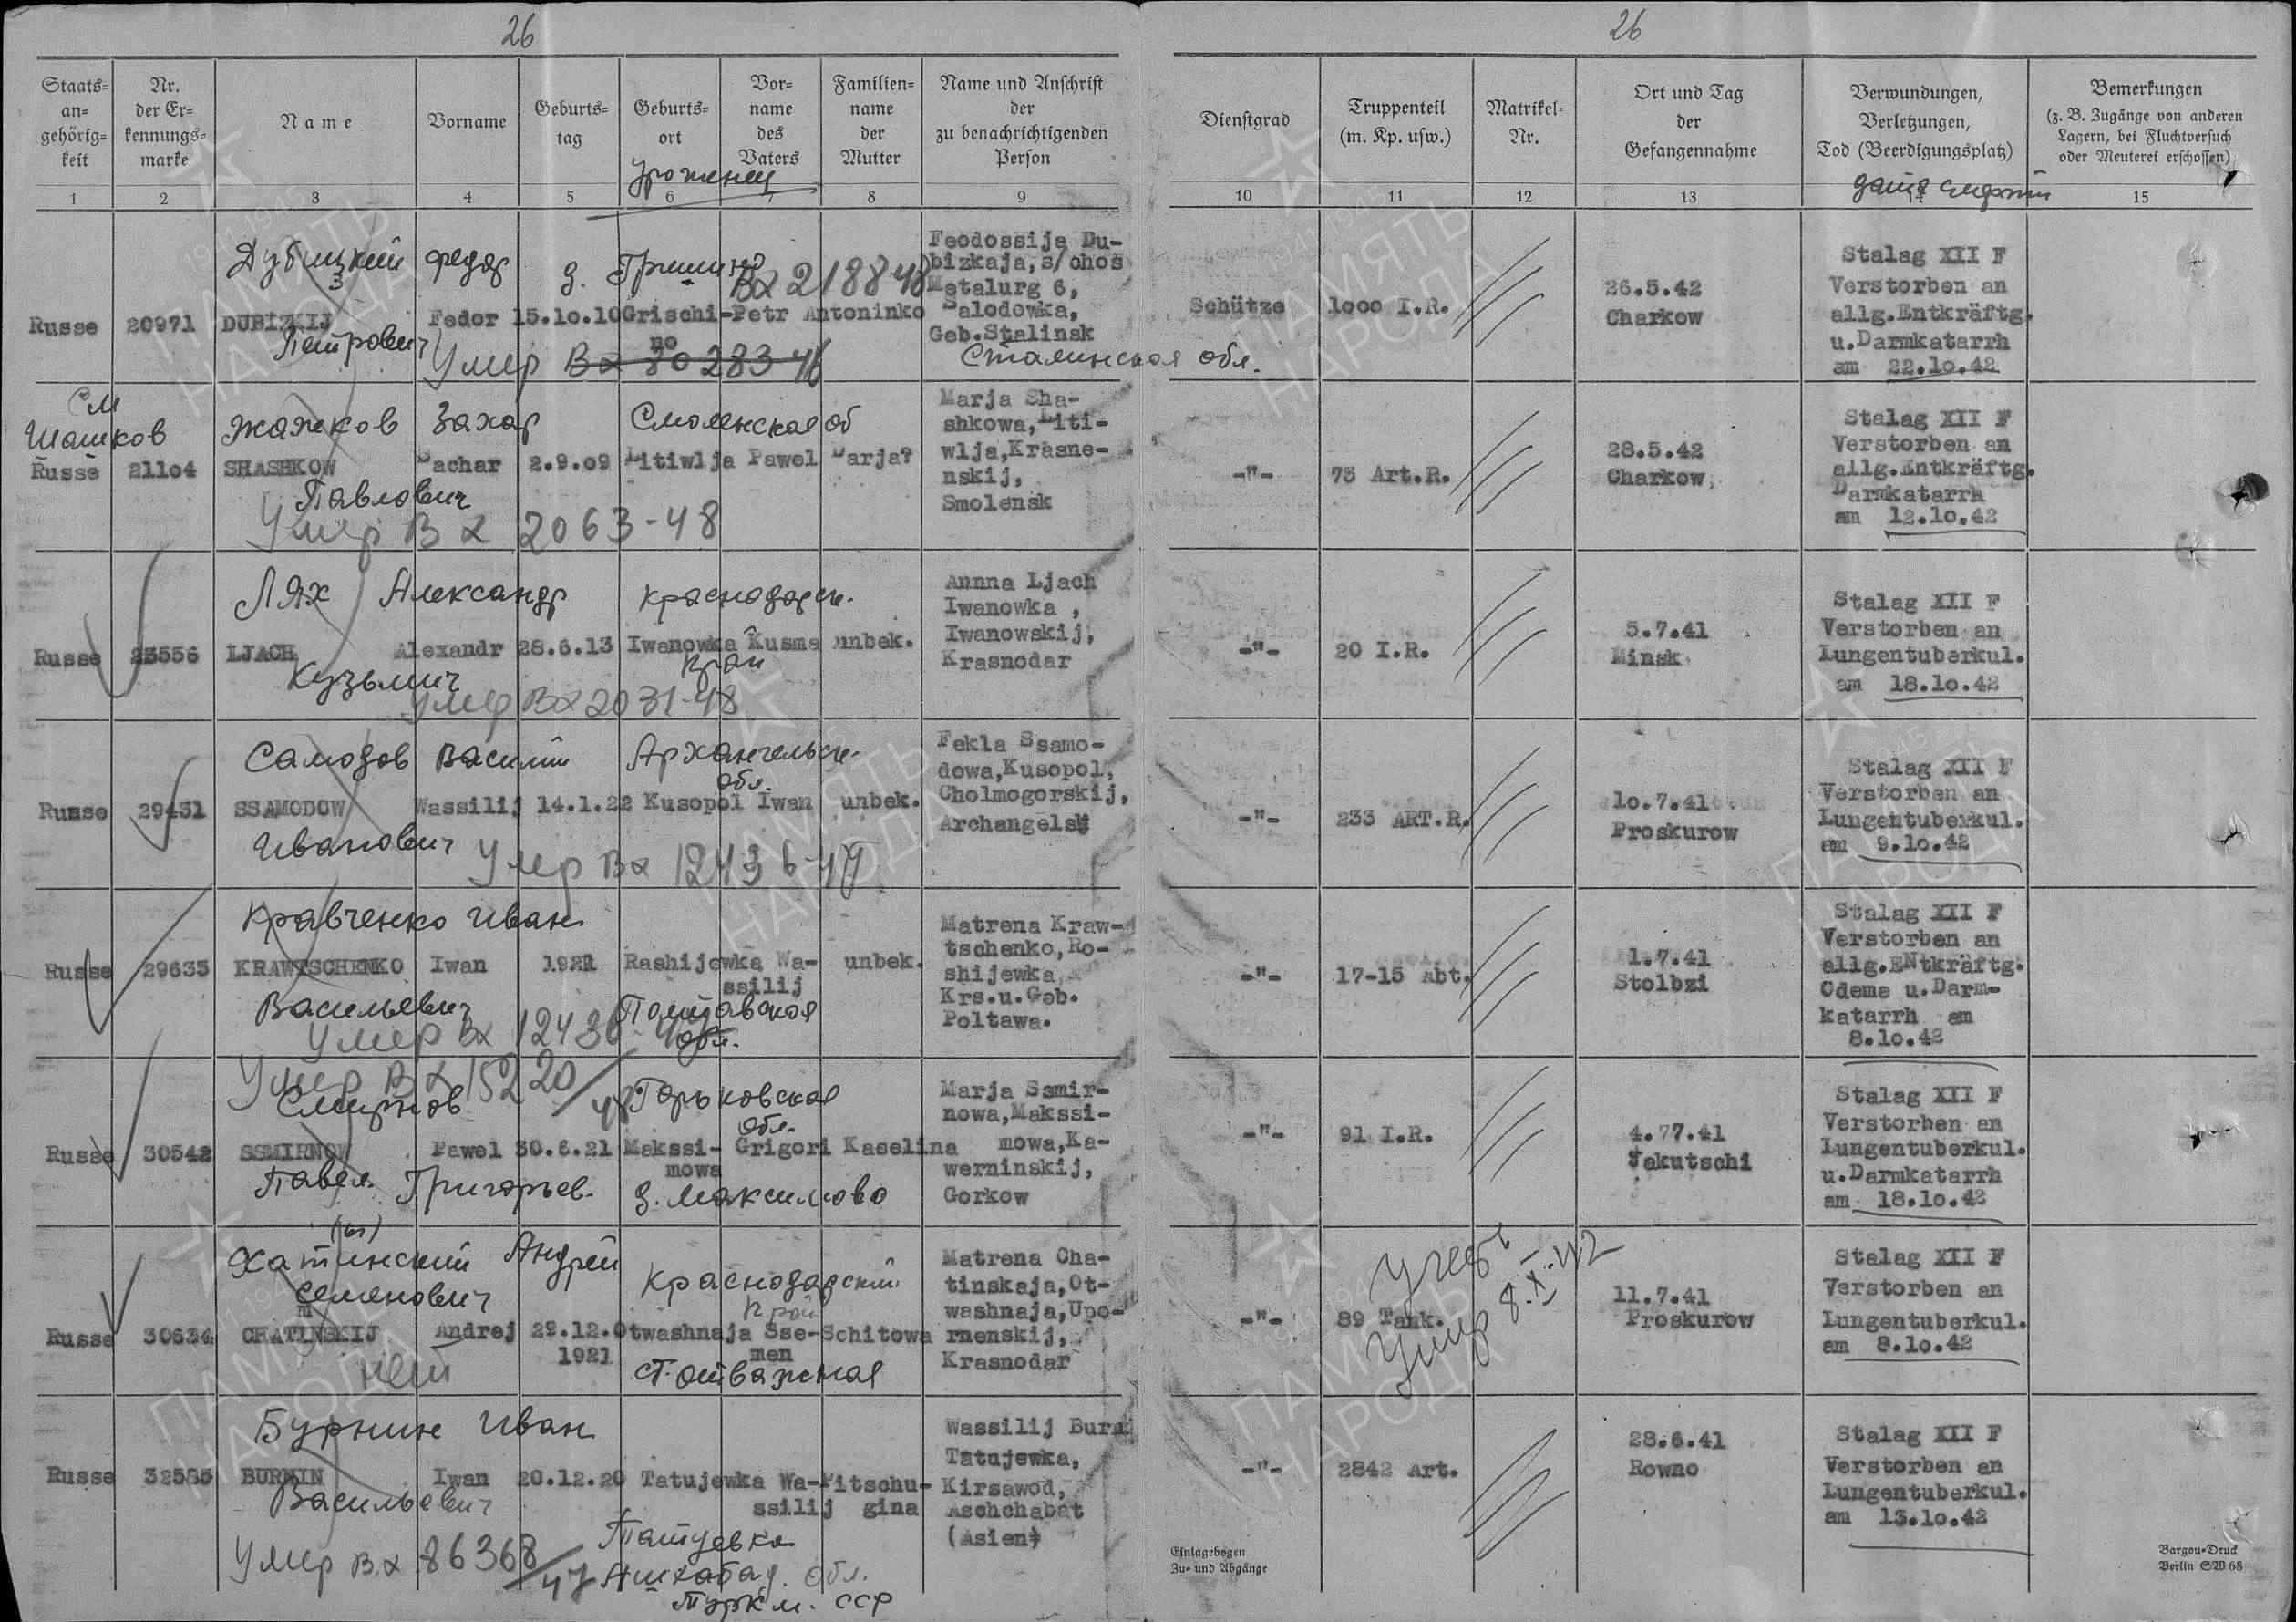 26
26
Staats-an-gehörig-keit
Nr. der Er-kennungs-marke
Name
Vorname
Geburts-tag
Geburts-ort
Vor-name des Vaters
Familien-name der Mutter
Name und Anschrift der zu benachrichtigenden Person
Dienstgrad
Truppenteil (m. Kp. usw.)
Matrikel-Nr.
Ort und Tag der Gefangennahme
Verwundungen, Verletzungen, Tod (Beerdigungsplatz)
Bemerkungen (z. B. Zugänge von anderen Lagern, bei Fluchtversuch oder Meuterei erschossen)
Уроженец
дата смерти
1 2 3 4 5 6 7 8 9 10 11 12 13 14 15
Дубицкий Федор д. Гришино
Вх 21884
Russe 20971 DUBIZKIJ Fedor 15.10.10 Grischi-no Petr Antoninko
Петрович
Умер Вх 80283 46
Feodossija Du-
bizkaja, s/chos
Metalurg 6,
Palodowka,
Geb.Stalinsk
Сталинская обл.
Schütze 1000 I.R.
26.5.42
Charkow
Stalag XII F
Verstorben an
allg.Entkräftg.
u.Darmkatarrh
am 22.10.42
См
Шашков
Жажков Захар Смоленская об
Russe 21104 SHASHKOW Sachar 2.9.09 Litiwlja Pawel Darja?
Павлович
Умер Вх 2063-48
Marja Sha-
shkowa, Liti-
wlja, Krasne-
nskij,
Smolensk
-"- 75 Art.R.
28.5.42
Charkow
Stalag XII F
Verstorben an
allg.Entkräftg.
Darmkatarrh
am 12.10.42
Лях Александр Краснодарск.
Russe 23556 LJACH Alexandr 28.6.13 Iwanowka Kusma unbek.
Кузьмич край
Умер Вх 2031-48
Annna Ljach
Iwanowka ,
Iwanowskij,
Krasnodar
-"- 20 I.R.
5.7.41
Minsk
Stalag XII F
Verstorben an
Lungentuberkul.
am 18.10.42
Самодов Василий Архангельск. обл.
Russe 29431 SSAMODOW Wassilij 14.1.22 Kusopol Iwan unbek.
Иванович
Умер Вх 12436-49
Fekla Ssamo-
dowa, Kusopol,
Cholmogorskij,
Archangelsk
-"- 233 ART.R.
10.7.41
Proskurow
Stalag XII F
Verstorben an
Lungentuberkul.
am 9.10.42
Кравченко Иван
Russe 29635 KRAWTSCHENKO Iwan 1921 Rashijewka Wa-ssilij unbek.
Васильевич Полтавская обл.
Умер Вх 12436
Matrena Kraw-
tschenko, Ro-
shijewka
Krs.u.Geb.
Poltawa.
-"- 17-15 Abt.
1.7.41
Stolbzi
Stalag XII F
Verstorben an
allg.ENtkräftg.
Odeme u.Darm-
katarrh am
8.10.42
Умер Вх 15220/48
Смирнов Горьковская обл.
Russe 30542 SSMIRNOW Pawel 30.6.21 Makssi-mowa Grigori Kaselina
Павел Григорьев. д. Максимово
Marja Ssmir-
nowa, Makssi-
mowa, Ka-
werninskij,
Gorkow
-"- 91 I.R.
4.77.41
Jakutschi
Stalag XII F
Verstorben an
Lungentuberkul.
u.Darmkatarrh
am 18.10.42
(ы)
Хатинский Андрей
Семенович Краснодарский край
Russe 30634 CHATINSKIJ Andrej 29.12.1921 Otwashnaja Sse-men Schitowa
нет ст. отважная
Matrena Cha-
tinskaja, Ot-
washnaja, Upo-
rnenskij,
Krasnodar
-"- 89 Tank.
Учесть
Умер 8.X-42
11.7.41
Proskurow
Stalag XII F
Verstorben an
Lungentuberkul.
am 8.10.42
Бурнин Иван
Russe 32585 BURNIN Iwan 20.12.20 Tatujewka Wa-ssilij Pitschu-gina
Васильевич
Умер Вх 86368/47
Татуевка
Ашхабад. обл.
Туркм. ССР
Wassilij Burn
Tatujewka,
Kirsawod,
Aschchabat
(Asien)
-"- 2842 Art.
28.6.41
Rowno
Stalag XII F
Verstorben an
Lungentuberkul.
am 13.10.42
Einlagebogen
Zu- und Abgänge
Bargou-Druck
Berlin SW 68
ПАМЯТЬ НАРОДА